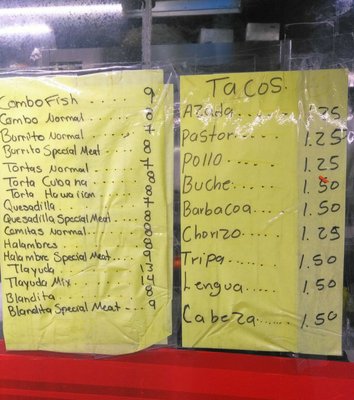 Combo Fish .... 9
Combo Normal .... 8
Burrito Normal .... 7
Burrito Special Meat .. 8
Tortas Normal .... 7
Torta Cubana .... 8
Torta Hawaiian .... 8
Quesadilla .... 7
Quesadilla Special Meat .... 8
Camilas Normal .... 8
Halambres .... 8
Halambre Special Meat .... 9
Tlayuda .... 13
Tlayuda Mix .... 14
Blandita .... 8
Blandita Special Meat .... 9
TACOS
Azada 1.25
Pastor .... 1.25
Pollo .... 1.25
Buche .... 1.50
Barbacoa .... 1.50
Chorizo .... 1.25
Tripa .... 1.50
Lengua .... 1.50
Cabeza .... 1.50